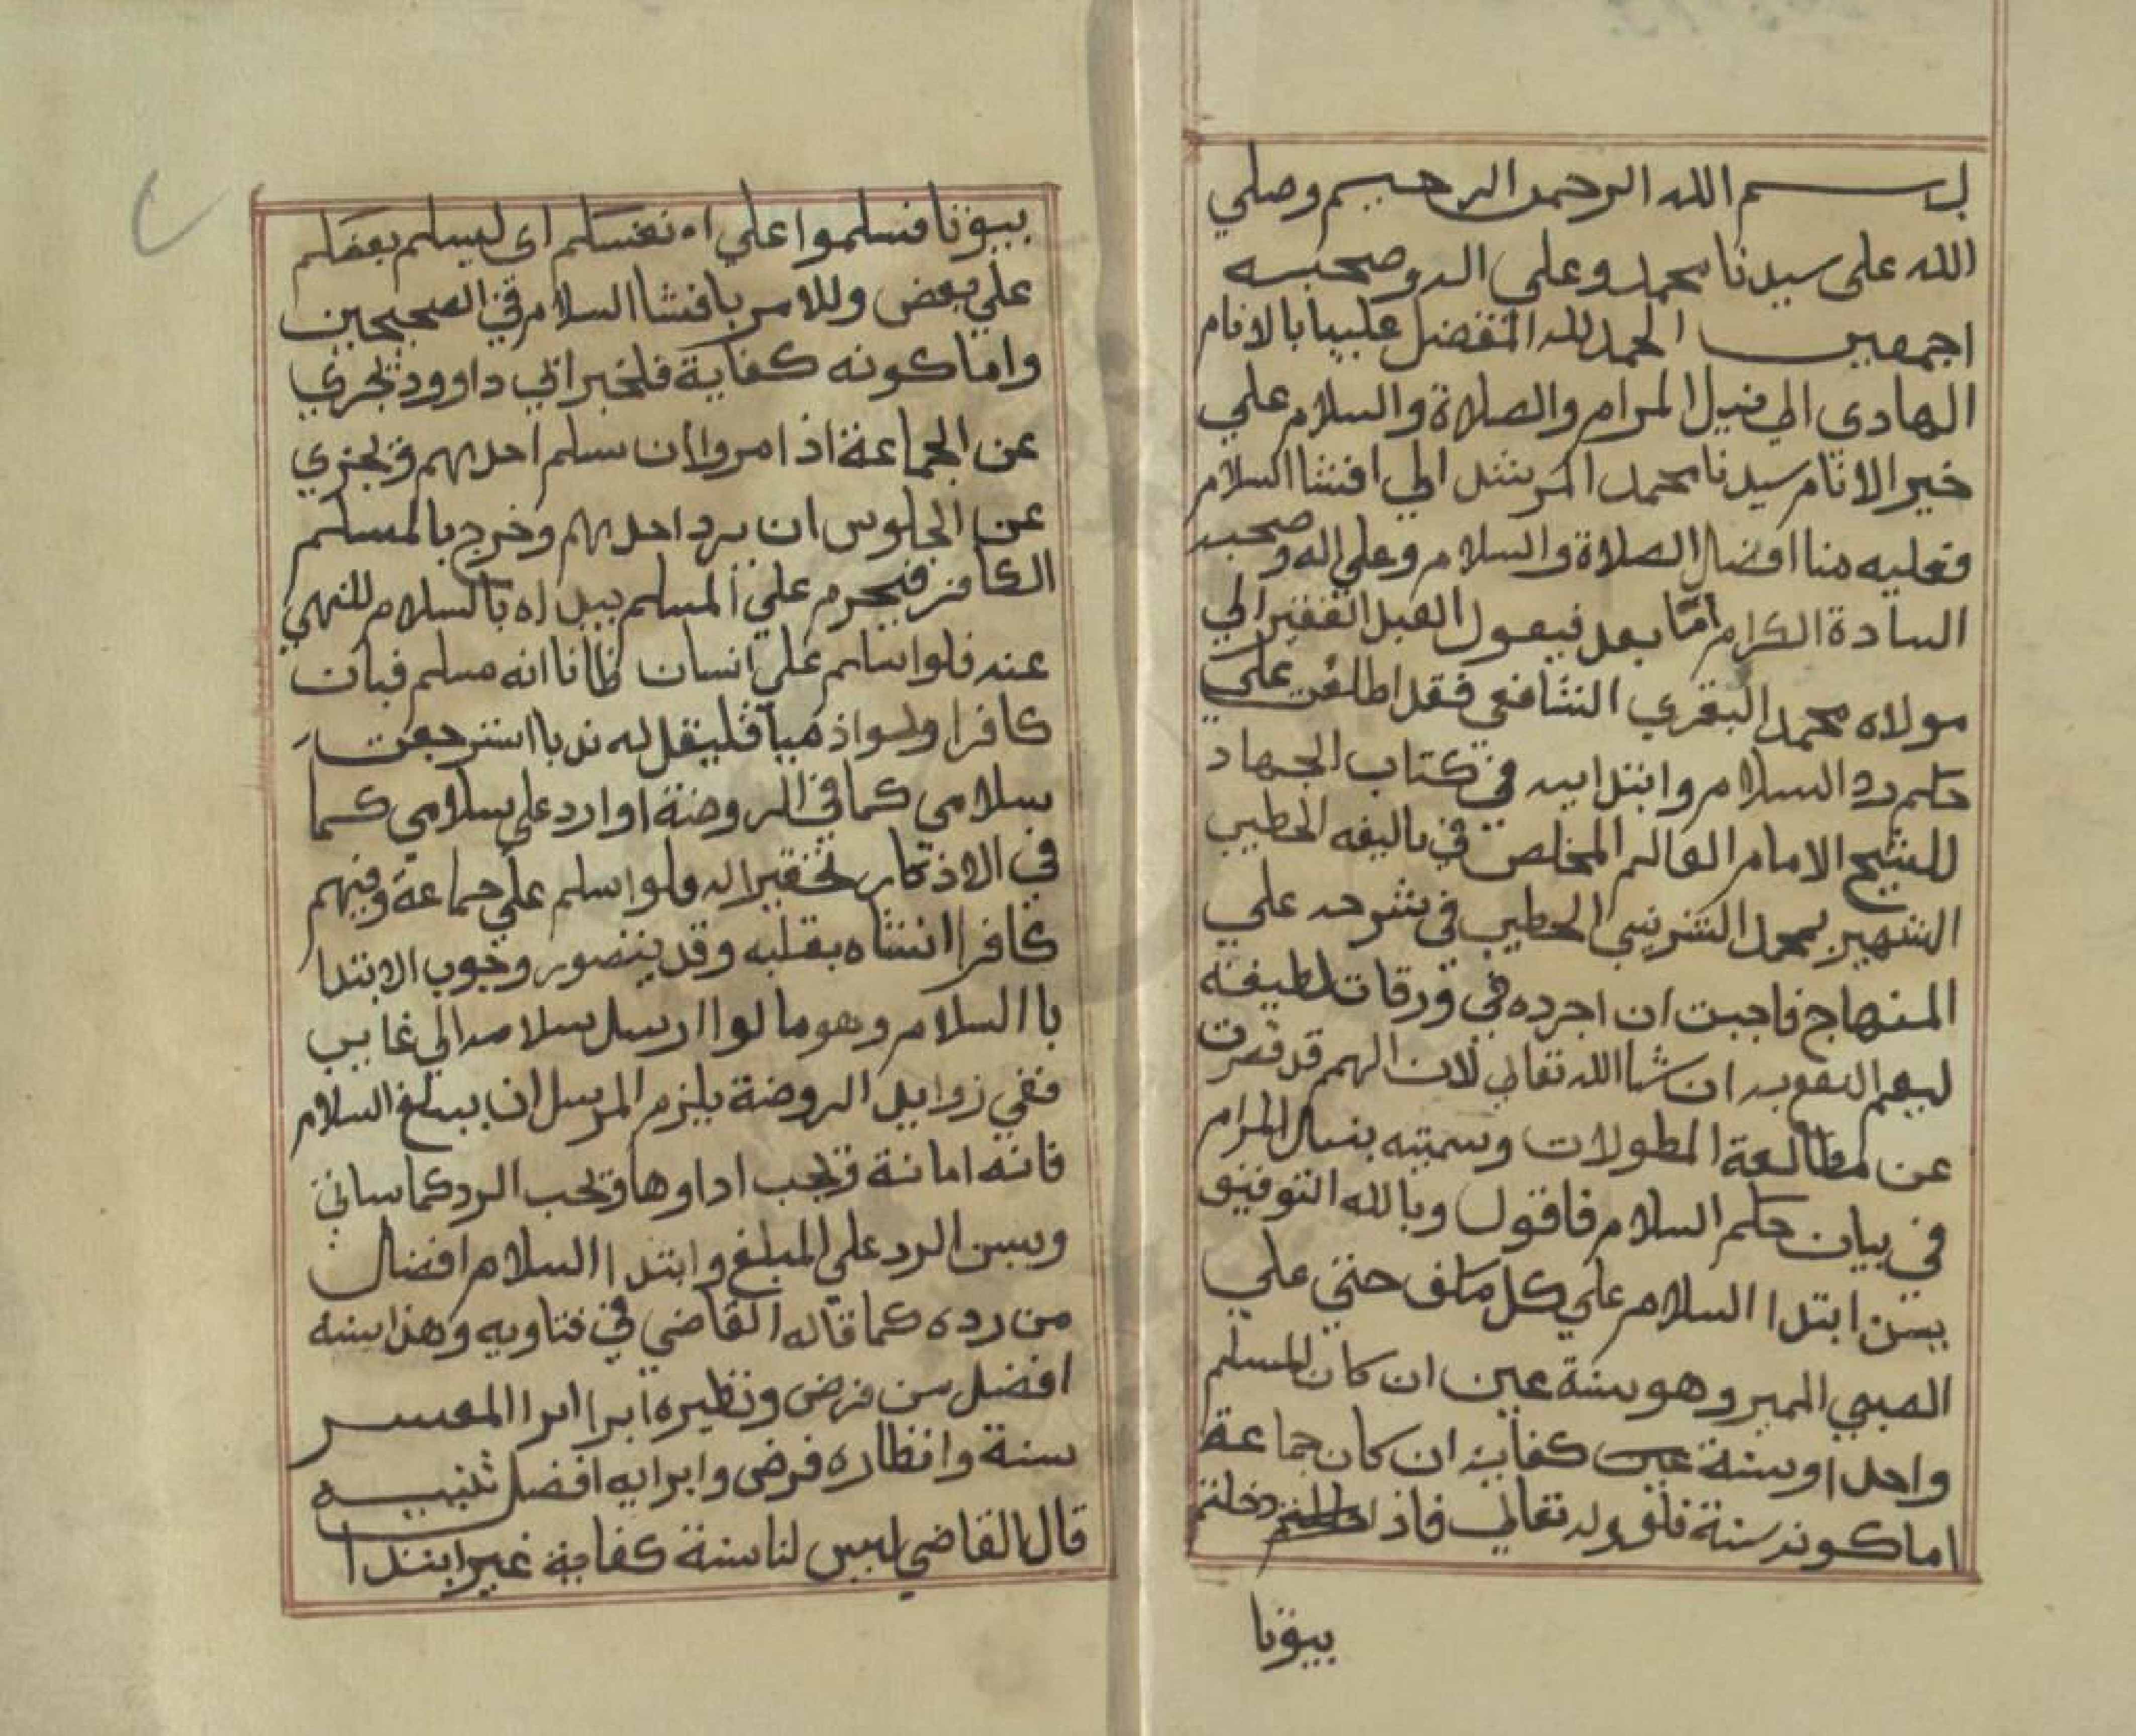 بسم الله الرحمن الرحيم وصلي
الله على سيدنا محمد وعلي اله وصحبه
اجمعين الحمد لله المتفضل علينا بالانام
الهادى الي نيل المرام والصلاة والسلام علي
خير الانام سيدنا محمد المرشد الي افشا السلام
فعليه منا افضل الصلاة والسلام وعلي اله وصحبه
السادة الكرام اما بعد فيقول العبد الفقير الي
مولاه محمد البقري الشافعي فقد اطلعت علي
حكم رد السلام وابتدايه في كتاب الجهاد
للشيخ الامام العالم المخلص في تاليفه الخطيب
الشهير بمحمد الشربيني الخطيب في شرحه علي
المنهاج فاجبت ان اجرده في ورقات لطيفة
ليعم النفع به ان شا الله تعالي لان الهمم قد قصرت
عن مطالعة المطولات وسميته بنيل المرام
في بيان حكم السلام فاقول وبالله التوفيق
يسن ابتدا السلام علي كل مكلف حتي علي
الصبي المميز وهو سنة عين ان كان المسلم
واحد او سنة عين كفاية ان كان جماعة
اما كونه سنة فلقوله تعالي فاذا دخلتم
بيوتا
بيوتا فسلموا علي انفسكم اي ليسلم بعضكم
علي بعض وللامر بافشا السلام في الصحيحين
واما كونه كفاية فلخبر ابي داوود يجزي
عن الجماعة اذا مروا ان سلم احدهم ويجزي
عن الجلوس ان يرد احدهم وخرج بالمسلم
الكافر فيحرم علي المسلم بيداه بالسلام للنهي
عنه فلوا سلم علي انسان ظانا انه مسلم فبان
كافرا ولوا ذميا فليقل له ندبا استرجعت
سلامي كما في الروضة او ارد علي سلامي كما
في الاذكار تحقيرا له ولوا سلم علي جماعة وفيهم
كافرا استثناه بقلبه وقد يتصور وجوب الابتدا
با السلام وهو ما لوا ارسل سلامه الي غايب
ففي زوايد الروضة يلزم المرسل ان يبلغ السلام
فانه امانة ويجب اداوها ويجب الرد كما ساتي
ويسن الرد علي المبلغ وابتدا السلام افضل
من رده كما قاله القاضي في فتاويه وهذا سنة
افضل من فرض ونظيره ابرا ابرا المعسر
سنة وانظاره فرض وابرايه افضل تنبيه
قال القاضي ليس لنا سنة كفاية غير ابتدا